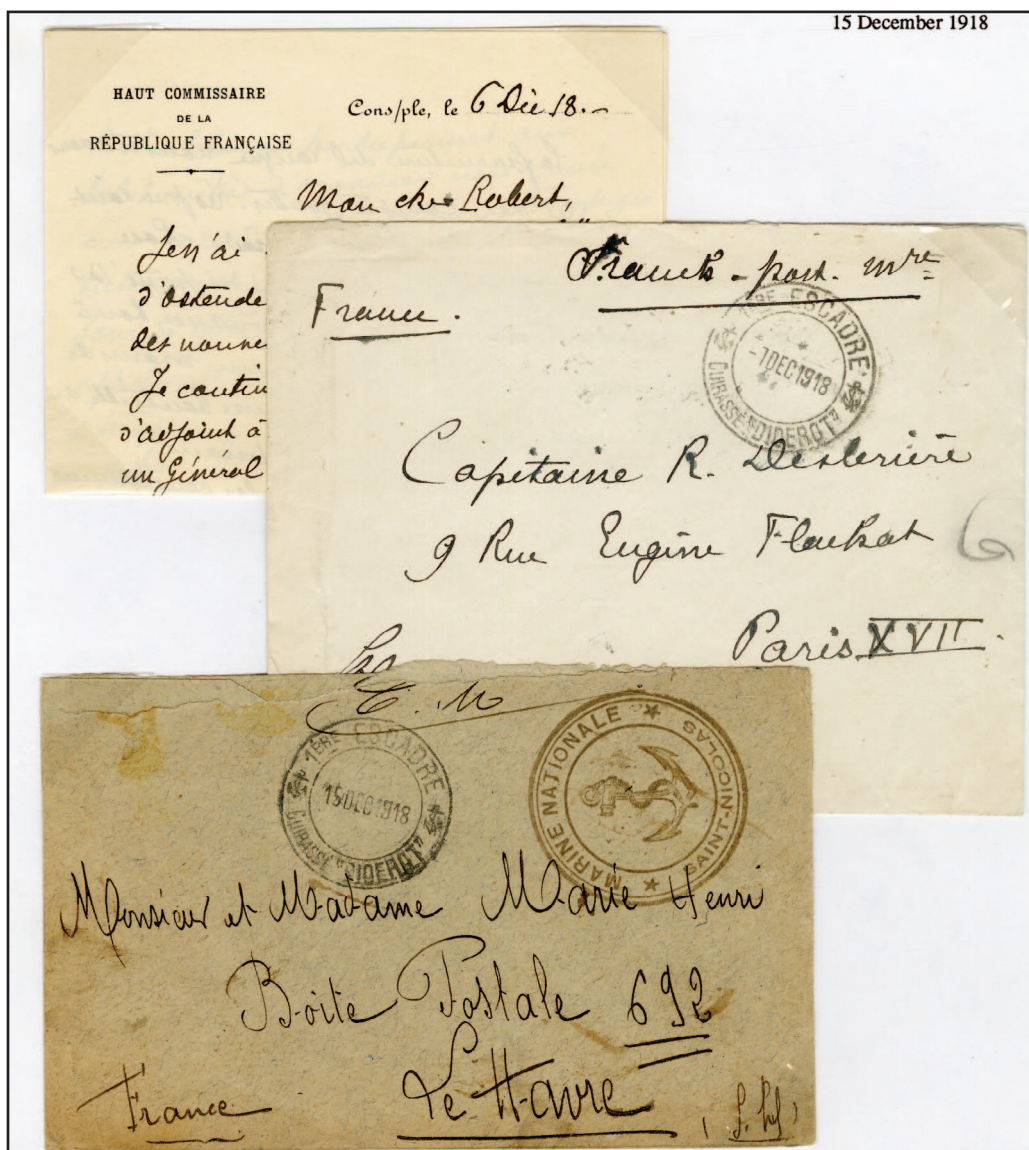 15 December 1918
HAUT COMMISSAIRE
DE LA
RÉPUBLIQUE FRANÇAISE
Cons/ple, le 6 Déc 18.-
Mon cher Robert,
Je n'ai
d'ostende
des nouve
Je contin
d'adjoint à
un Général
Franch - post. mre
France.
1ÈRE ESCADRE
-7 DEC 1918
CUIRASSÉ "DIDEROT"
Capitaine R. Desbrière
9 Rue Eugène Flachat
6
Paris XVII
MARINE NATIONALE
SAINT-NICOLAS
1ÈRE ESCADRE
15 DEC 1918
CUIRASSÉ "DIDEROT"
Monsieur et Madame Marie Henri
Boite Postale 692
Le Havre
France